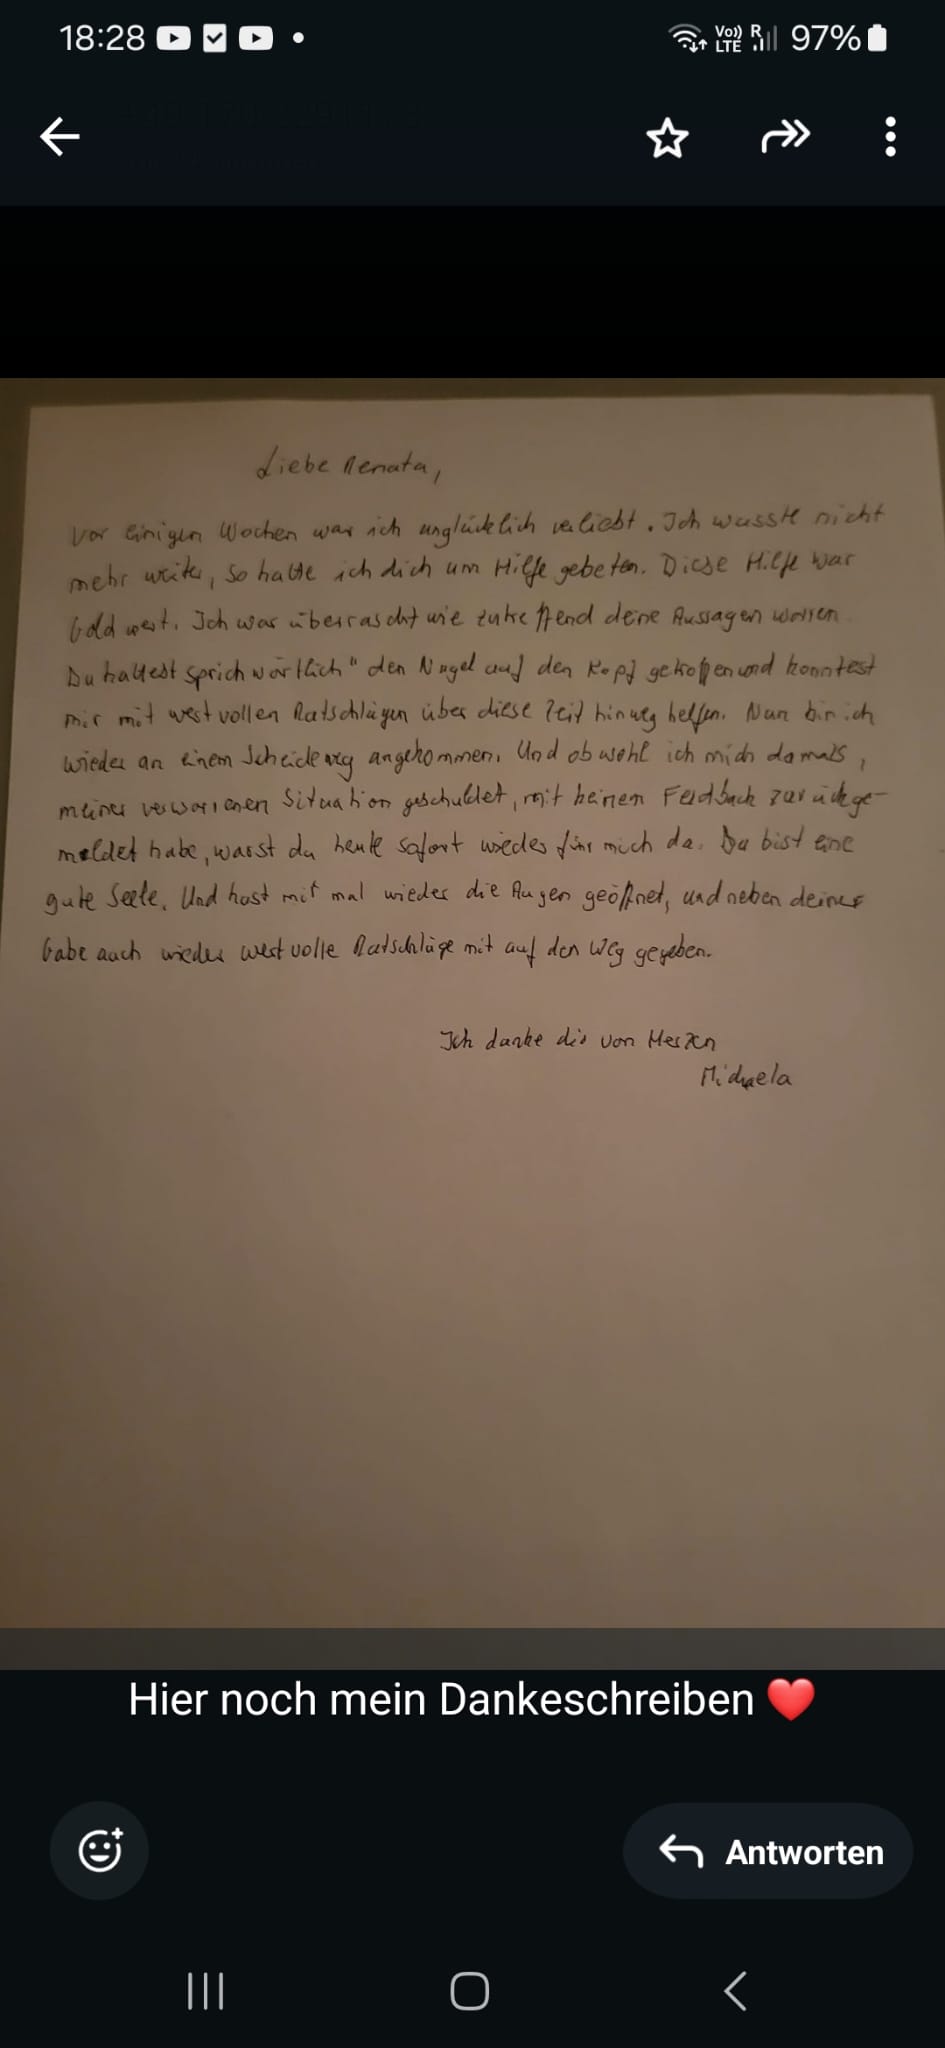 18:28
Vo)) LTE R 97%
Liebe Renata,
Vor einigen Wochen war ich unglücklich verliebt. Ich wusste nicht
mehr weiter, so hatte ich dich um Hilfe gebeten. Diese Hilfe war
Gold wert. Ich war überrascht wie zutreffend deine Aussagen waren.
Du hattest sprichwörtlich" den Nagel auf den Kopf getroffen und konntest
mir mit wertvollen Ratschlägen über diese Zeit hinweg helfen. Nun bin ich
wieder an einem Scheideweg angekommen. Und obwohl ich mich damals,
meiner verworrenen Situation geschuldet, mit keinem Feedback zurückge-
meldet habe, warst du heute sofort wieder für mich da. Du bist eine
gute Seele. Und hast mir mal wieder die Augen geöffnet, und neben deiner
Gabe auch wieder wertvolle Ratschläge mit auf den Weg gegeben.
Ich danke dir von Herzen
Michaela
Hier noch mein Dankeschreiben ❤️
Antworten